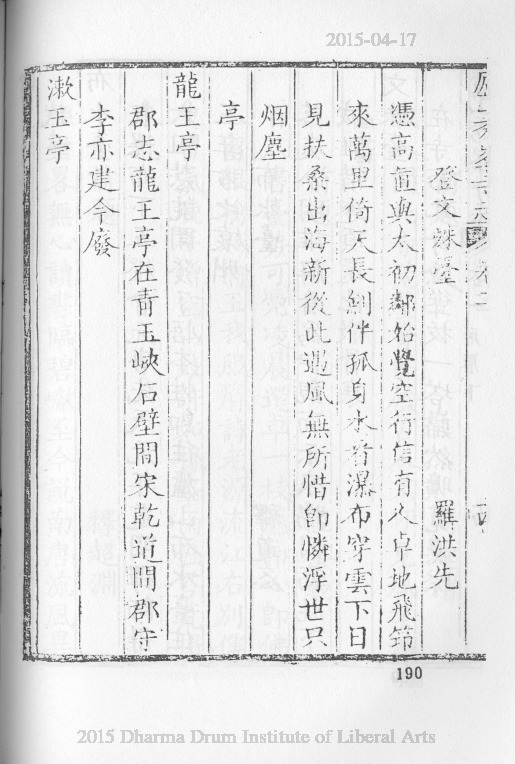 2015-04-17
登文殊臺
羅洪先
憑高直與太初鄰始覺空行信有人卓地飛筇
來萬里倚天長劍伴孤身水看瀑布穿雲下日
見扶桑出海新從此遇風無所惜卻憐浮世只
烟塵
亭
龍王亭
郡志龍王亭在青玉峽石壁間宋乾道間郡守
李亦建今廢
漱玉亭
190
2015 Dharma Drum Institute of Liberal Arts